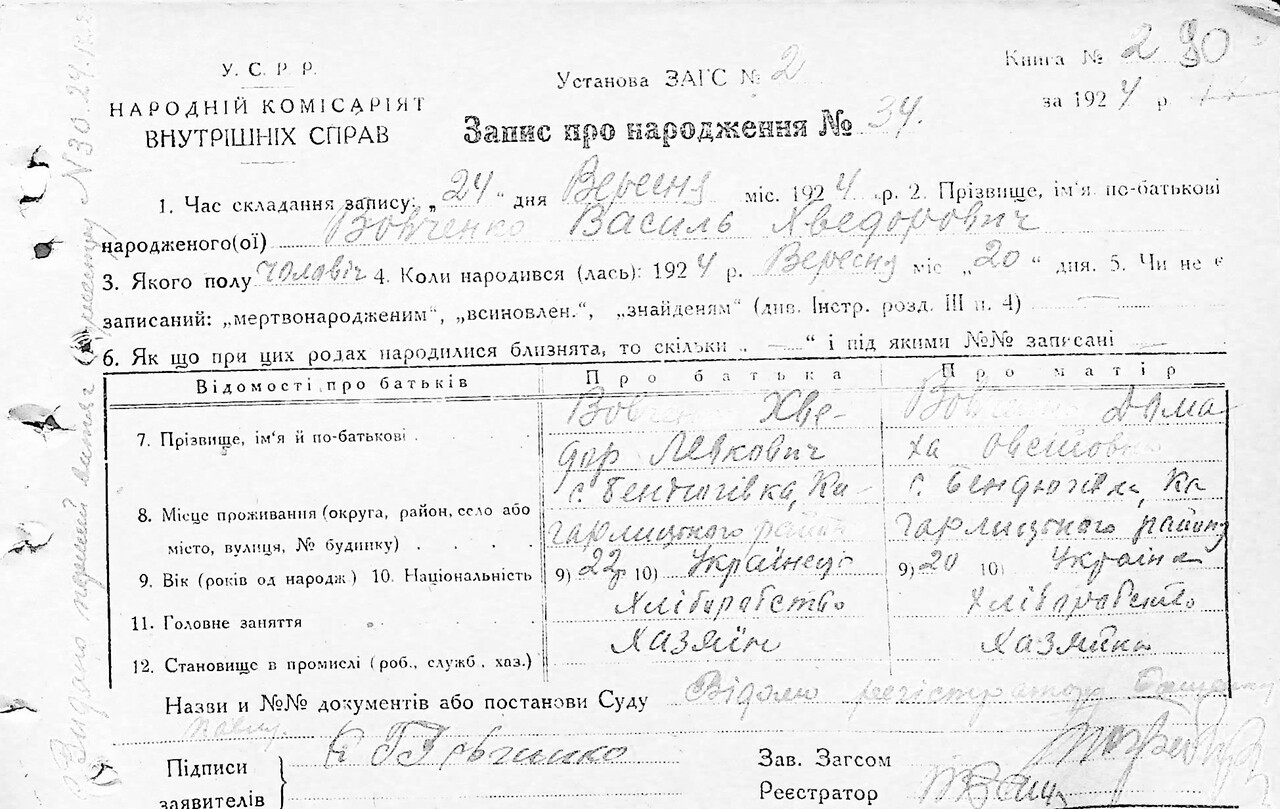 У. С. Р. Р.
НАРОДНІЙ КОМІСАРІЯТ
ВНУТРІШНІХ СПРАВ
Установа ЗАГС № 2
Книга № 2 90
за 1924 р.
Запис про народження № 34.
1. Час складання запису: „24“ дня Вересня міс. 1924 р. 2. Прізвище, ім'я по-батькові
народженого(ої) Вовченко Василь Хведорович
3. Якого полу чоловіч 4. Коли народився (лась): 1924 р. Вересня міс „20“ дня. 5. Чи не є
записаний: „мертвонародженим“, „всиновлен.“, „знайденям“ (див. Інстр. розд. III п. 4) —
6. Як що при цих родах народилися близнята, то скільки „ — “ і під якими №№ записані —
Відомості про батьків Про батька Про матір
7. Прізвище, ім'я й по-батькові Хве-
дор Левкович
Дома
ха
8. Місце проживання (округа, район, село або
місто, вулиця, № будинку)
с. Бендюгівка, Ка-
гарлицького району
с. Бендюгівка, Ка
гарлицького району
9. Вік (років од народж) 10. Національність 9) 22р 10) Українець 9) 20 10) Україн
11. Головне заняття Хліборобство Хліборобство
12. Становище в промислі (роб., служб., хаз.) Хазяїн Хазяйка
Назви и №№ документів або постанови Суду Відомо
Підписи
заявителів
Зав. Загсом
Реєстратор
Видано перший витяг